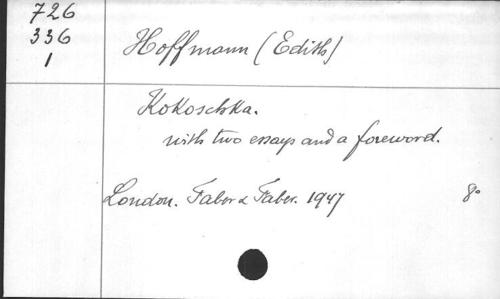 726
336
1
Hoffmann (Edith)
Kokoschka.
with two essays and a foreword.
London. Faber & Faber. 1947 8°